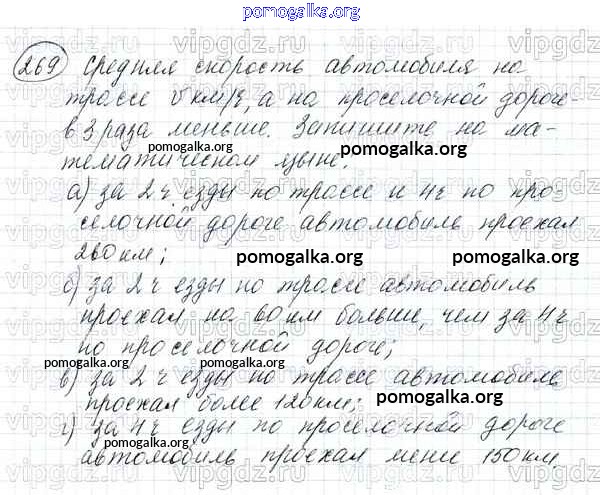 pomogalka.org
269 Средняя скорость автомобиля на
трассе v км/ч, а на проселочной дороге -
в 3 раза меньше. Запишите на ма-
тематическом языке:
pomogalka.org
pomogalka.org
а) за 2 ч езды по трассе и 4 ч по про-
селочной дороге автомобиль проехал
260 км;
pomogalka.org
pomogalka.org
б) за 2 ч езды по трассе автомобиль
проехал на 60 км больше, чем за 4 ч
по проселочной дороге;
pomogalka.org
pomogalka.org
в) за 2 ч езды по трассе автомобиль
проехал более 120 км;
pomogalka.org
г) за 4 ч езды по проселочной дороге
pomogalka.org
автомобиль проехал мене 150 км.